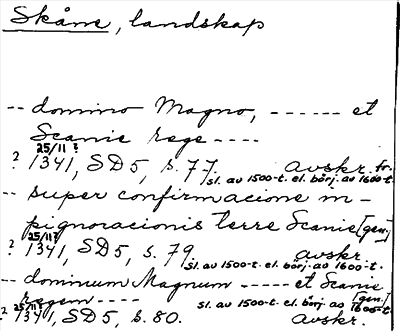 Skåne, landskap
-- domino Magno, ------ et
Scanie rege ----
25/11 ?
? 1341, SD5, s. 77. avskr. fr.
sl. av 1500-t. el. börj. av 1600-t.
-- super confirmacione in-
pignoracionis terre Scanie [gen.]
25/11?
? 1341, SD5, s. 79 avskr.
sl. av 1500-t. el. börj. av 1600-t.
-- dominum Magnum ----- et Scanie
regem ---- [gen.]
sl. av 1500-t. el. börj. av 1600-t.
25/11?
? 1341, SD5, s. 80. avskr.